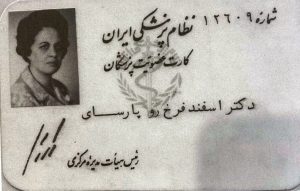 شماره ۱۲۶۰۹
نظام پزشکی ایران
کارت عضویت پزشکان
دکتر اسفند فرخ رو پارسای
رئیس هیأت مدیره مرکزی